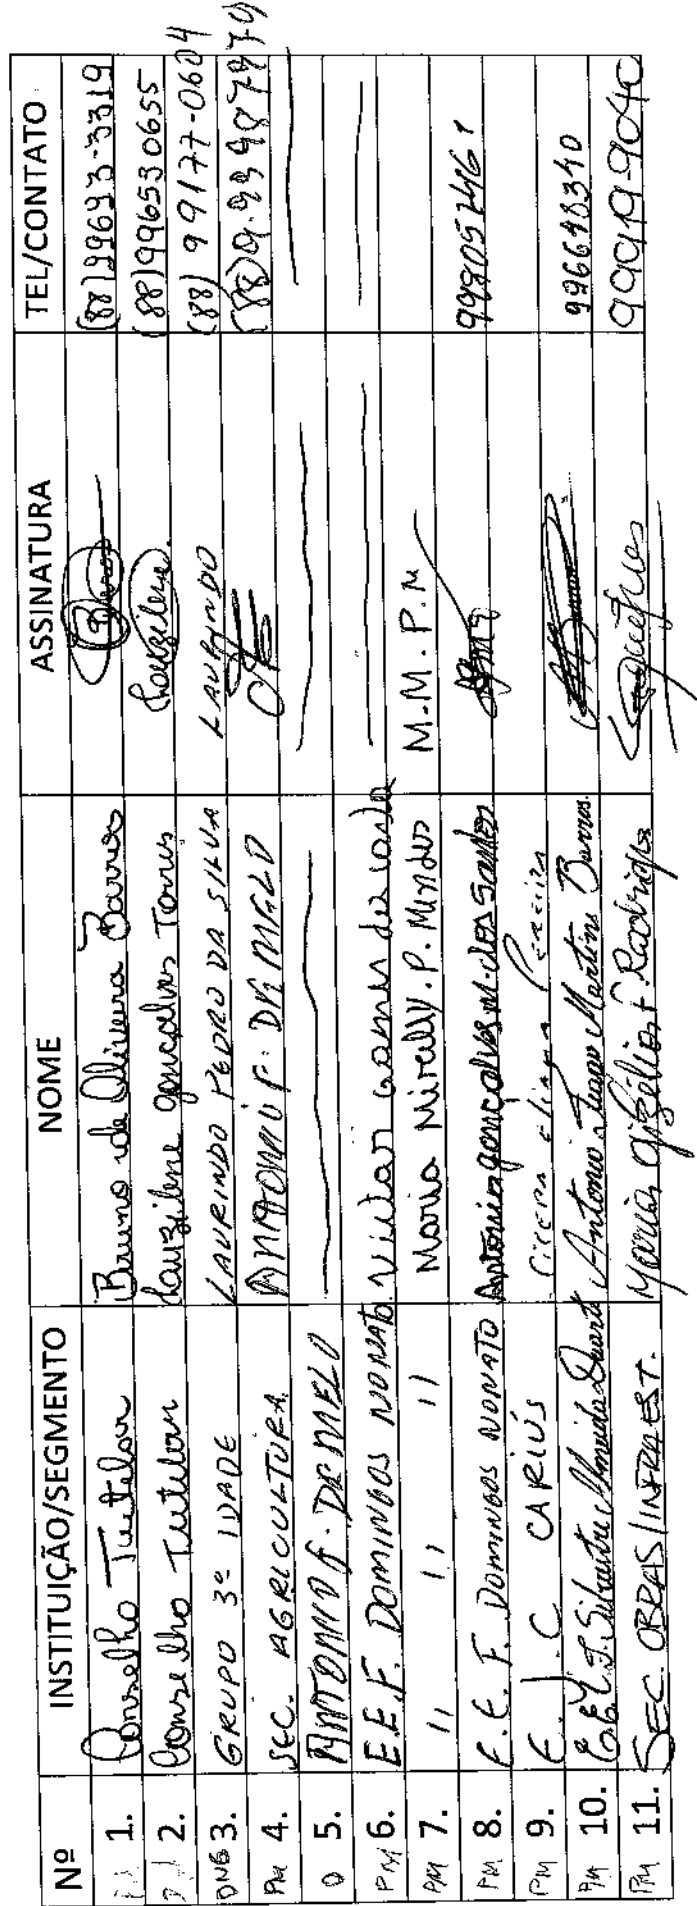 Nº INSTITUIÇÃO/SEGMENTO NOME ASSINATURA TEL/CONTATO
1. Conselho Tutelar Bruno de Oliveira Barros (88)99693-3319
2. Conselho Tutelar Lauzilene gonçalves Torres Lauzilene. (88)996530655
ONG 3. GRUPO 3º IDADE LAURINDO PEDRO DA SILVA LAURINDO (88) 99177-0604
PM 4. SEC. AGRICULTURA ANTONIO F. DE MELO
0 5. ANTONIO F. DE MELO
PM 6. E.E.F. DOMINGOS NONATO
PM 7. 11 11 11 Maria Mirelly. P. Mendes M.M.P.M
PM 8. E.E.F. DOMINGOS NONATO Antonia gonçalves M. dos Santos
PM 9. E. J. C CARIÚS Cicera Pereira
PM 10. Almeida Duarte Antonio Tiago Martins Barros. 996648340
PM 11. SEC. OBRAS/INFRAEST. Maria F. Rodrigues 99919-9040